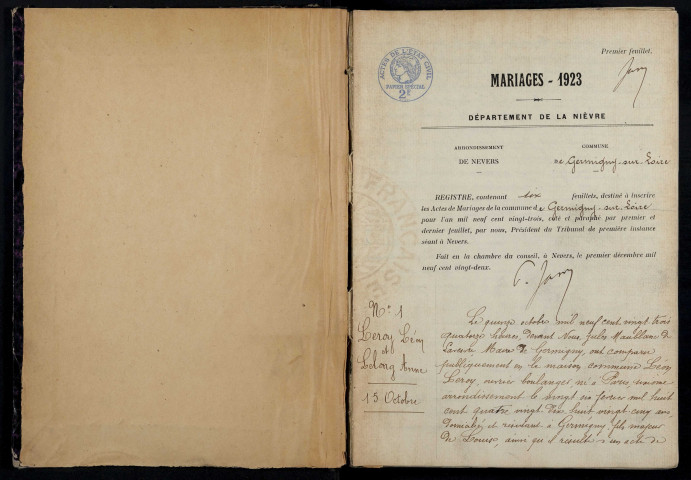 Premier feuillet.
ACTES DE L'ÉTAT CIVIL
PAPIER SPÉCIAL
2F
MARIAGES - 1923
DÉPARTEMENT DE LA NIÈVRE
ARRONDISSEMENT
DE NEVERS
COMMUNE
DE Germigny-sur-Loire
REGISTRE, contenant six feuillets, destiné à inscrire
les Actes de Mariages de la commune de Germigny-sur-Loire
pour l'an mil neuf cent vingt-trois, coté et paraphé par premier et
dernier feuillet, par nous, Président du Tribunal de première instance
séant à Nevers.
Fait en la chambre du conseil, à Nevers, le premier décembre mil
neuf cent vingt-deux.
N° 1
Leroy Léon
et
Anne
15 Octobre
Le quinze octobre mil neuf cent vingt trois
quatorze heures, devant Nous, Jules
Maire de Germigny, ont comparu
publiquement en la maison commune Léon
Leroy, ouvrier boulanger, né à Paris, onzième
arrondissement le vingt six février mil huit
cent quatre vingt dix huit vingt cinq ans,
domicilié et résidant à Germigny, fils majeur
de Louis, ainsi qu'il résulte d'un acte de